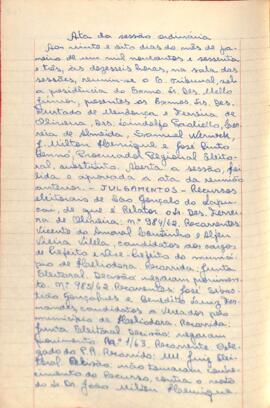 Ata da sessão ordinária
Aos vinte e oito dias do mês de ja-
neiro de um mil novecentos e sessenta
e três, às dezesseis horas, na sala das
sessões, reuniu-se o E. Tribunal, sob
a presidência do Exmo. Sr. Des. Mello
Júnior, presentes os Exmos. Srs. Des.
Furtado de Mendonça e Ferreira de
Oliveira, Drs.
de Almeida,
J. Milton Henrique e José Pinto
Procurador Regional Eleito-
ral, substituto. Aberta a sessão, foi
lida e aprovada a ata da reunião
anterior. - JULGAMENTOS - Recursos
eleitorais de São Gonçalo do Sapu-
caí, de que é Relator o Sr. Des. Ferrei-
ra de Oliveira: nº 984/62. Recorrentes
Vicente do Amaral e
Vieira Vilela, candidatos aos cargos
de Prefeito e Vice-Prefeito do municí-
pio de Heliodora. Recorrida: Junta
Eleitoral. Decisão: negaram provimen-
to. Nº 985/62. Recorrentes José
Gonçalves e Benedito Luiz Fer-
nandes, candidatos a Vereador pelo
município de Heliodora. Recorrida:
Junta Eleitoral. Decisão: negaram
provimento. Nº 1/63. Recorrente: Dele-
gado do P.R. Recorrido: MM. Juiz Elei-
toral. Decisão: não tomaram conhe-
cimento do recurso, contra o voto
do Sr. Dr. João Milton Henrique